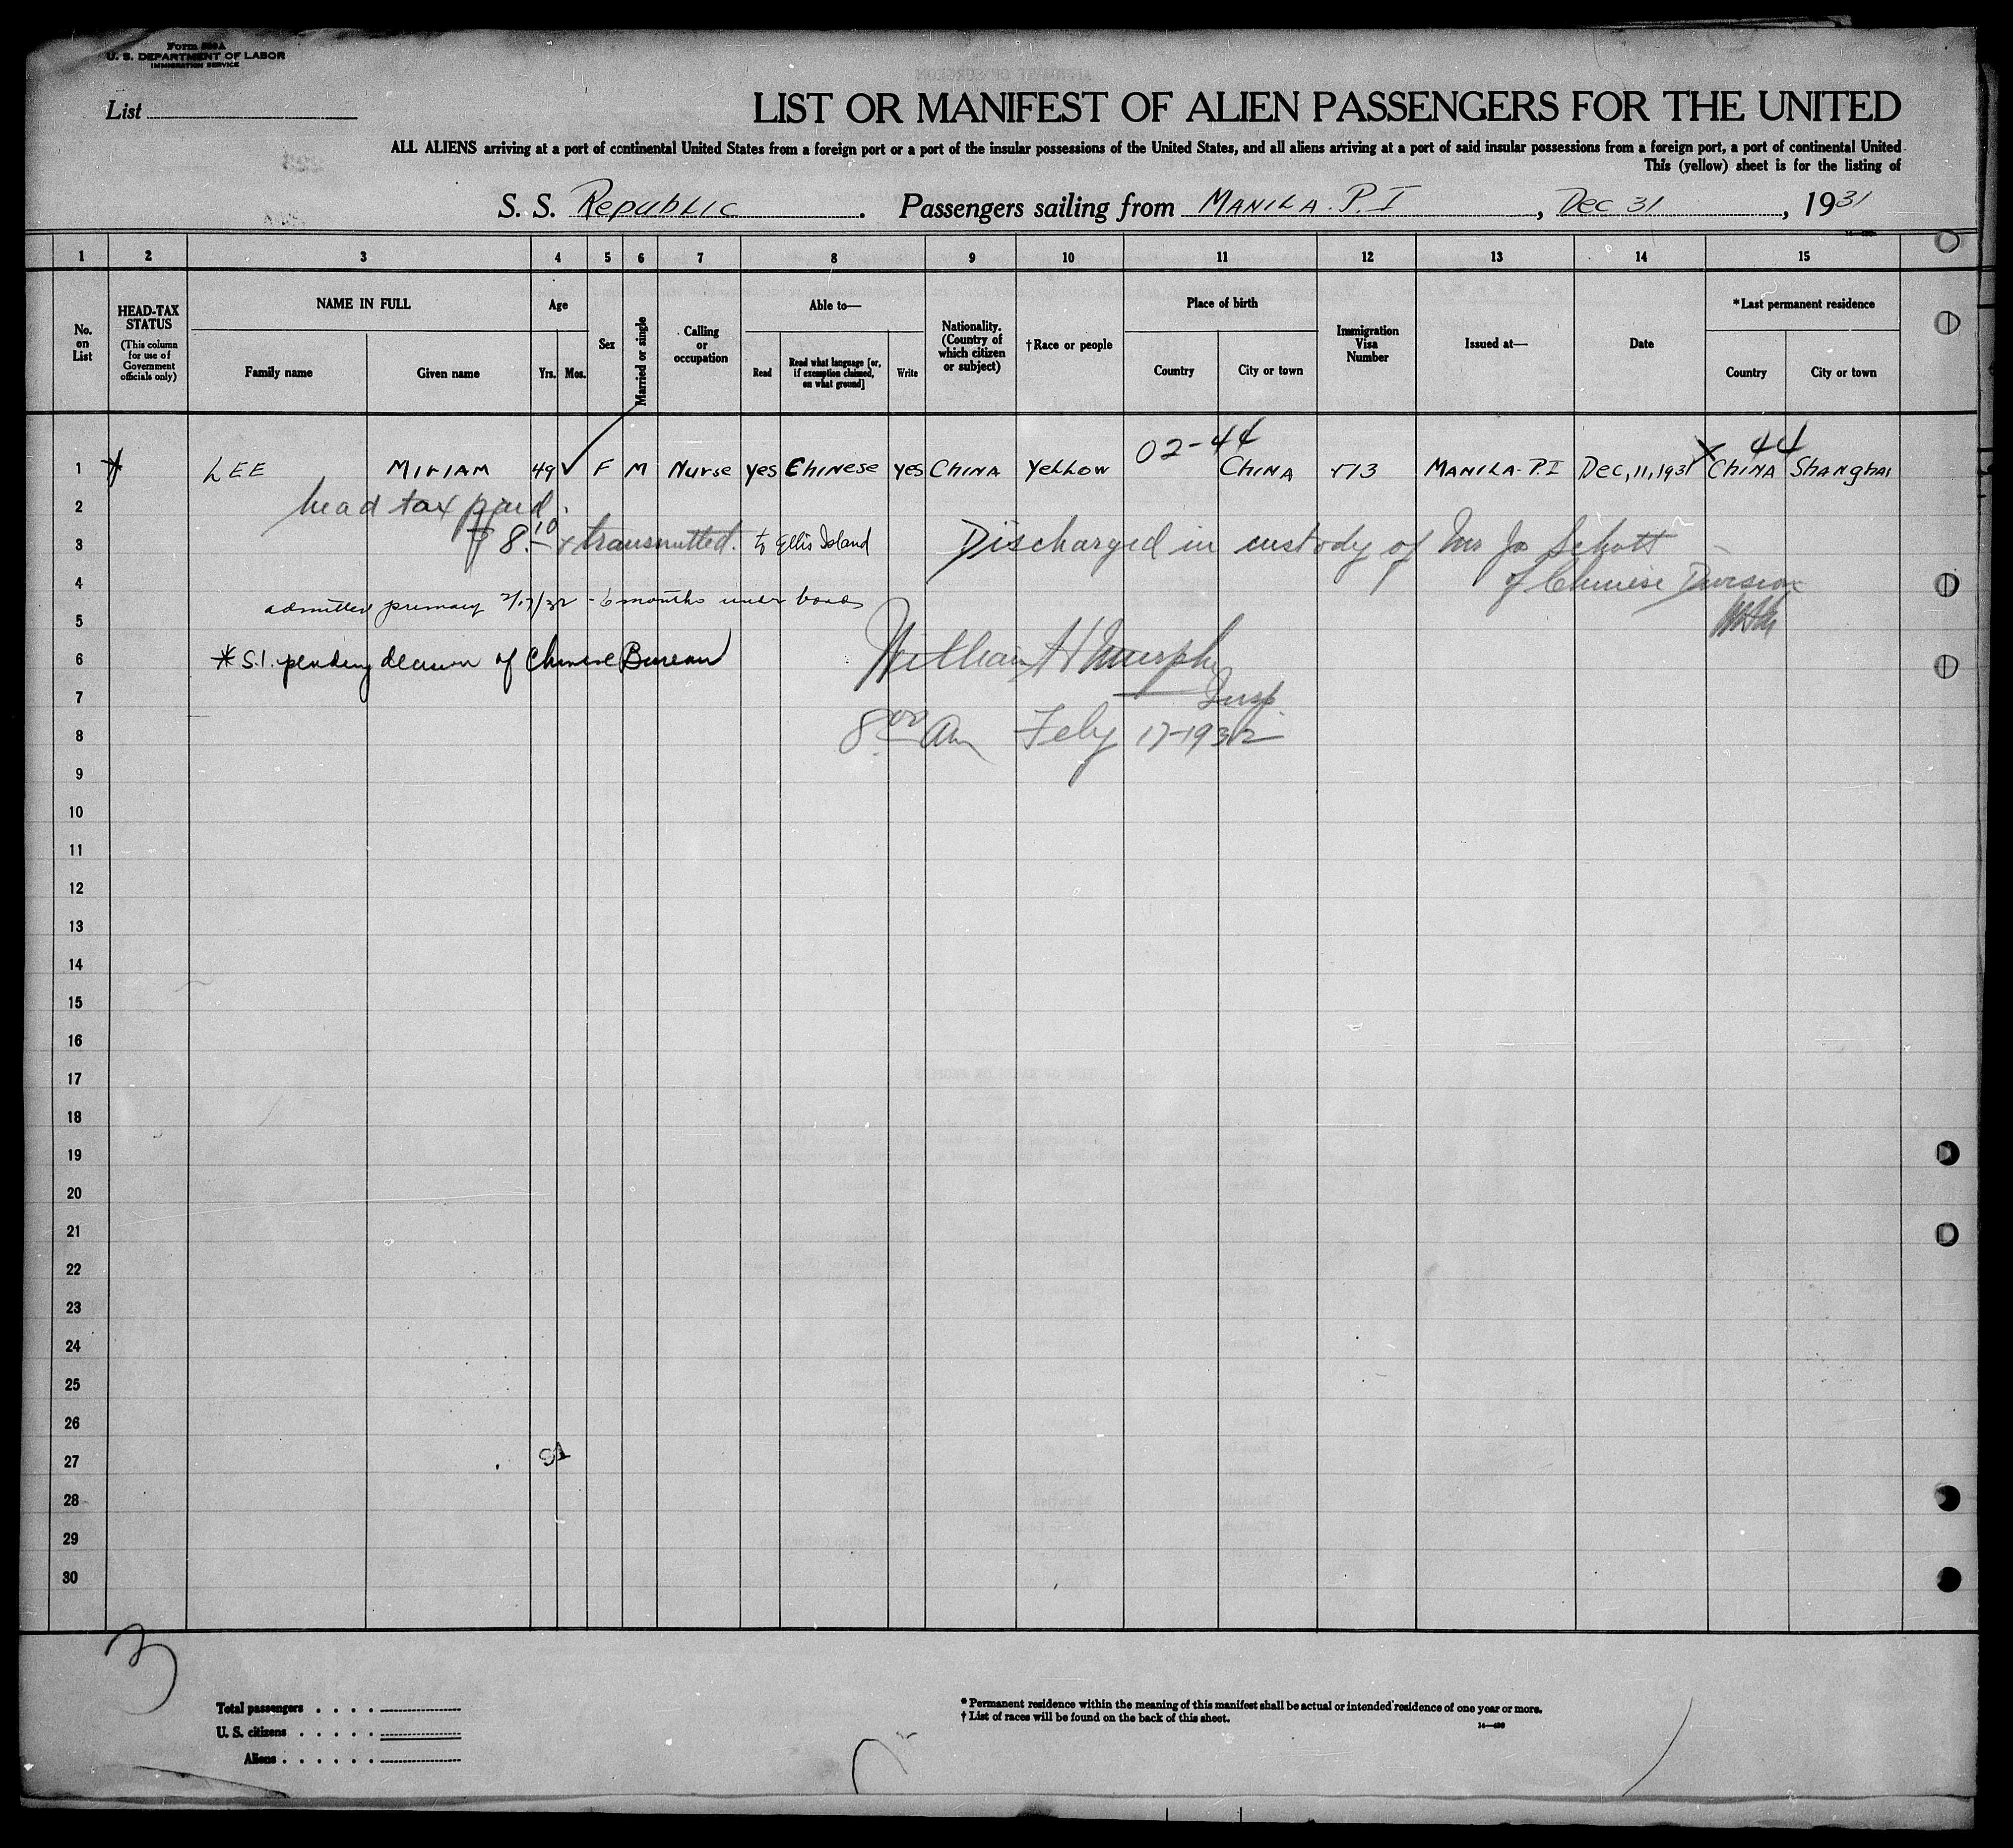 U. S. DEPARTMENT OF LABOR
IMMIGRATION SERVICE
List
LIST OR MANIFEST OF ALIEN PASSENGERS FOR THE UNITED
ALL ALIENS arriving at a port of continental United States from a foreign port or a port of the insular possessions of the United States, and all aliens arriving at a port of said insular possessions from a foreign port, a port of continental United
This (yellow) sheet is for the listing of
S. S. Republic. Passengers sailing from MANILA. P.I, Dec 31, 1931
1 2 3 4 5 6 7 8 9 10 11 12 13 14 15
No. on List
HEAD-TAX STATUS
(This column for use of Government officials only)
NAME IN FULL
Family name Given name
Age
Yrs. Mos.
Sex
Married or single
Calling or occupation
Able to—
Read
Read what language [or, if exemption claimed, on what ground]
Write
Nationality. (Country of which citizen or subject)
†Race or people
Place of birth
Country City or town
Immigration Visa Number
Issued at—
Date
*Last permanent residence
Country City or town
02-44 44
1 LEE MIRIAM 49 F M Nurse yes Chinese yes CHINA Yellow CHINA 713 MANILA-P.I Dec, 11, 1931 CHINA Shanghai
2 head tax paid
3 8.10 transmitted. to Ellis Island Discharged in custody of Schott
4 of Chinese Division
admitted primary 2/17/32 - 6 months under bond
5
6 *S.I. pending decision of Chinese Bureau William H Murphy
7 Insp.
8 8 00 Am Feby 17-1932
9
10
11
12
13
14
15
16
17
18
19
20
21
22
23
24
25
26
27
28
29
30
3
Total passengers . . . .
U. S. citizens . . . . .
Aliens . . . . . .
* Permanent residence within the meaning of this manifest shall be actual or intended residence of one year or more.
† List of races will be found on the back of this sheet.